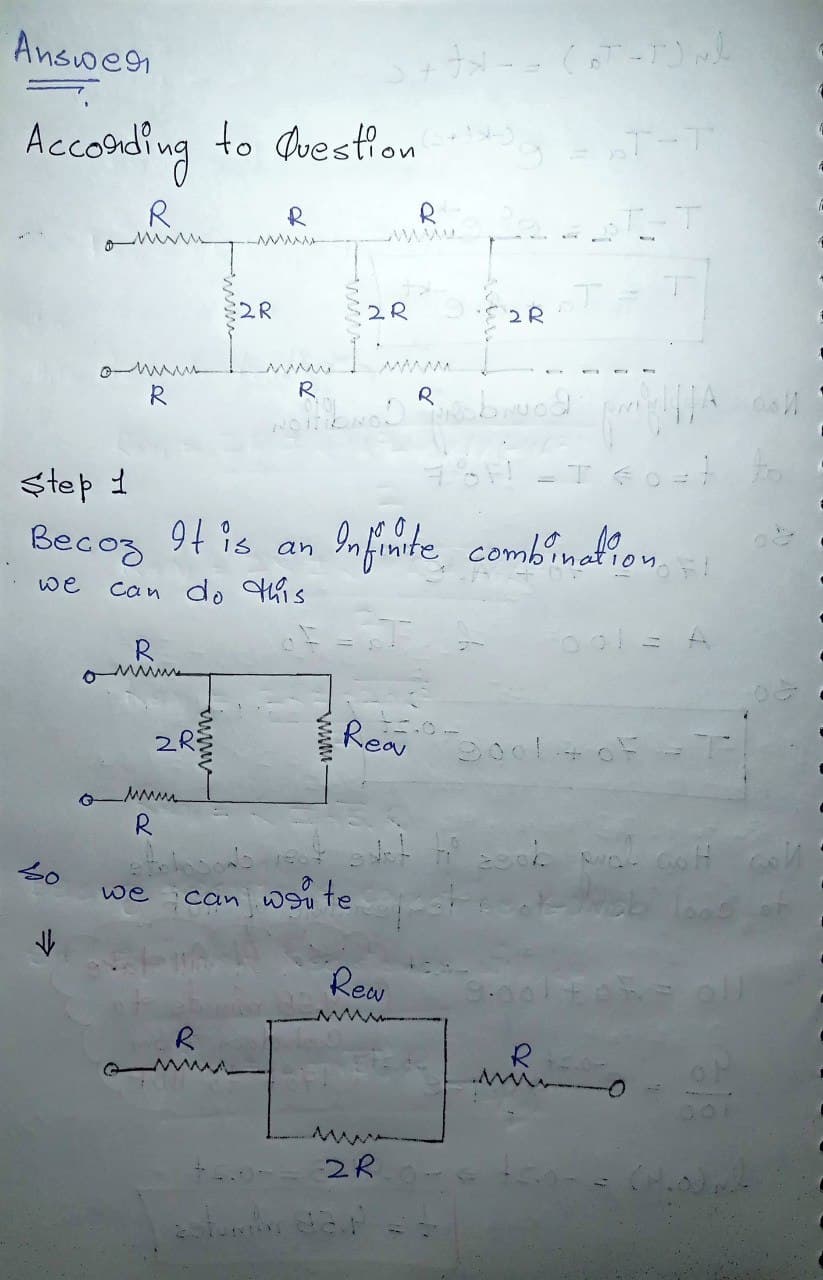 Answer
According to Question
R R R
2R 2R 2R
R R R
Step 1
Becoz It is an Infinite combination
we can do this
R
2R Req
R
So we can write
⇓
Req
R R
2R